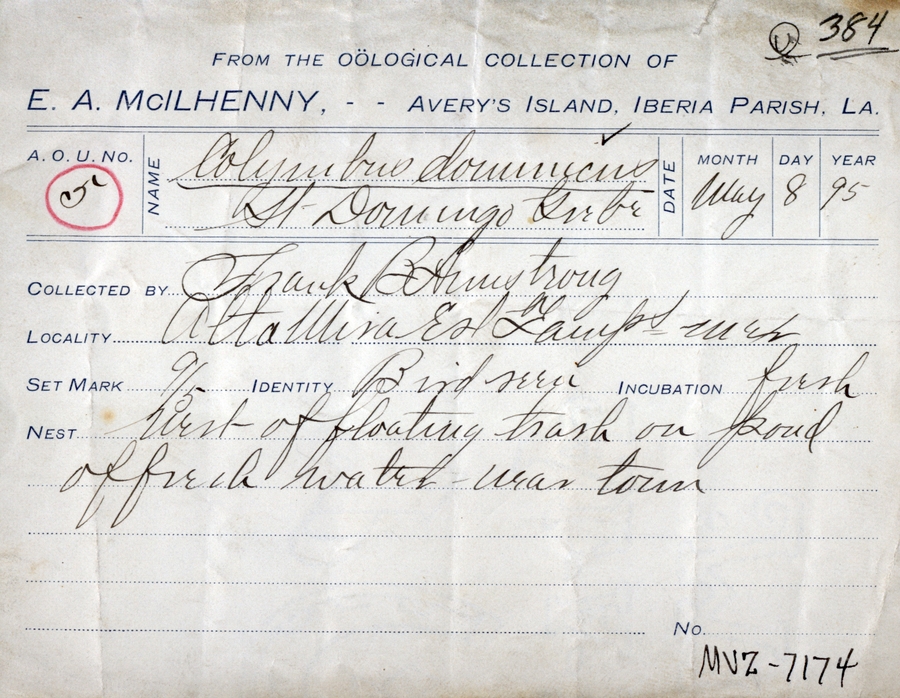 U 384
FROM THE OÖLOGICAL COLLECTION OF
E. A. McILHENNY, - - AVERY'S ISLAND, IBERIA PARISH, LA.
A. O. U. NO. 5 NAME Colymbus dominicus DATE MONTH May DAY 8 YEAR 95
St Domingo Grebe
COLLECTED BY Frank B Armstrong
LOCALITY Alta Mira Est Tamps mex
SET MARK 9/5 IDENTITY Bird seen INCUBATION fresh
NEST Nest of floating trash on pond
of fresh water near town
NO.
MVZ-7174